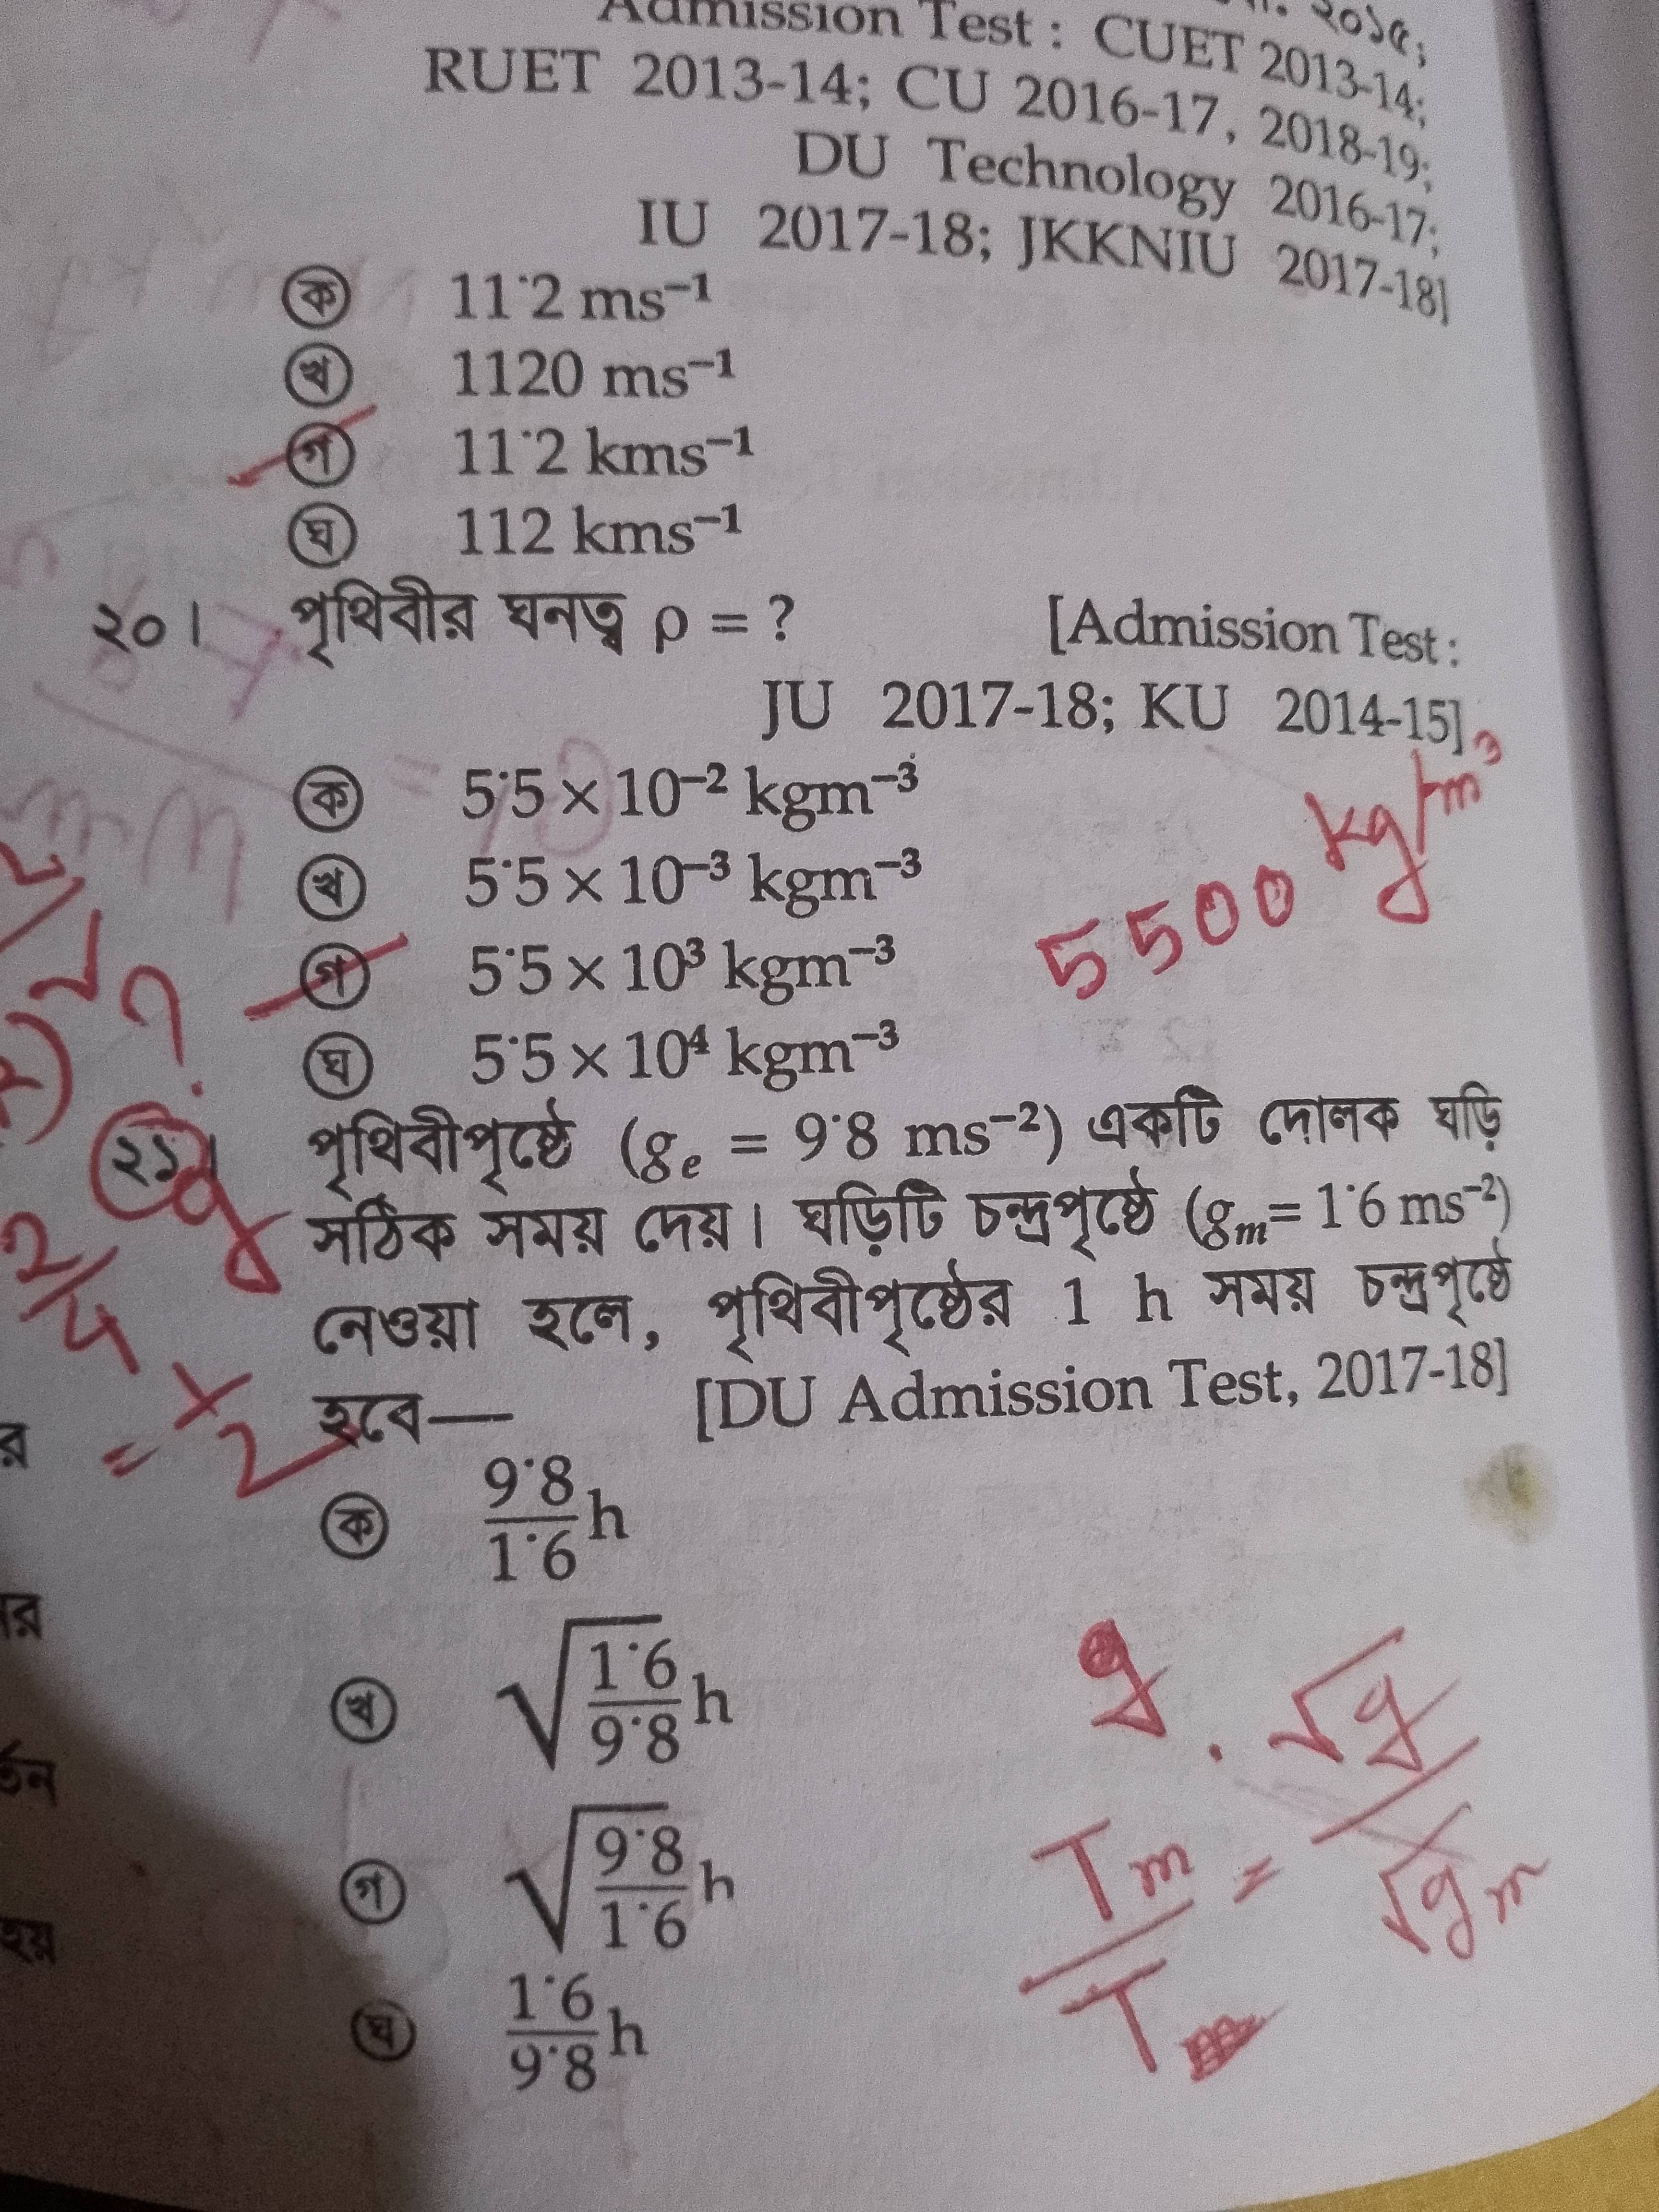 Admission Test : CUET 2013-14;
RUET 2013-14; CU 2016-17, 2018-19;
DU Technology 2016-17;
IU 2017-18; JKKNIU 2017-18]
ক 11·2 ms⁻¹
খ 1120 ms⁻¹
গ 11·2 kms⁻¹
ঘ 112 kms⁻¹
২০। পৃথিবীর ঘনত্ব ρ = ? [Admission Test :
JU 2017-18; KU 2014-15]
ক 5·5 × 10⁻² kgm⁻³
খ 5·5 × 10⁻³ kgm⁻³
গ 5·5 × 10³ kgm⁻³
ঘ 5·5 × 10⁴ kgm⁻³
5500 kg/m³
২১। পৃথিবীপৃষ্ঠে (gₑ = 9·8 ms⁻²) একটি দোলক ঘড়ি
সঠিক সময় দেয়। ঘড়িটি চন্দ্রপৃষ্ঠে (gₘ = 1·6 ms⁻²)
নেওয়া হলে, পৃথিবীপৃষ্ঠের 1 h সময় চন্দ্রপৃষ্ঠে
হবে— [DU Admission Test, 2017-18]
ক 9·8/1·6 h
খ √(1·6/9·8) h
গ √(9·8/1·6) h
ঘ 1·6/9·8 h
Tm/T = √g/√gm